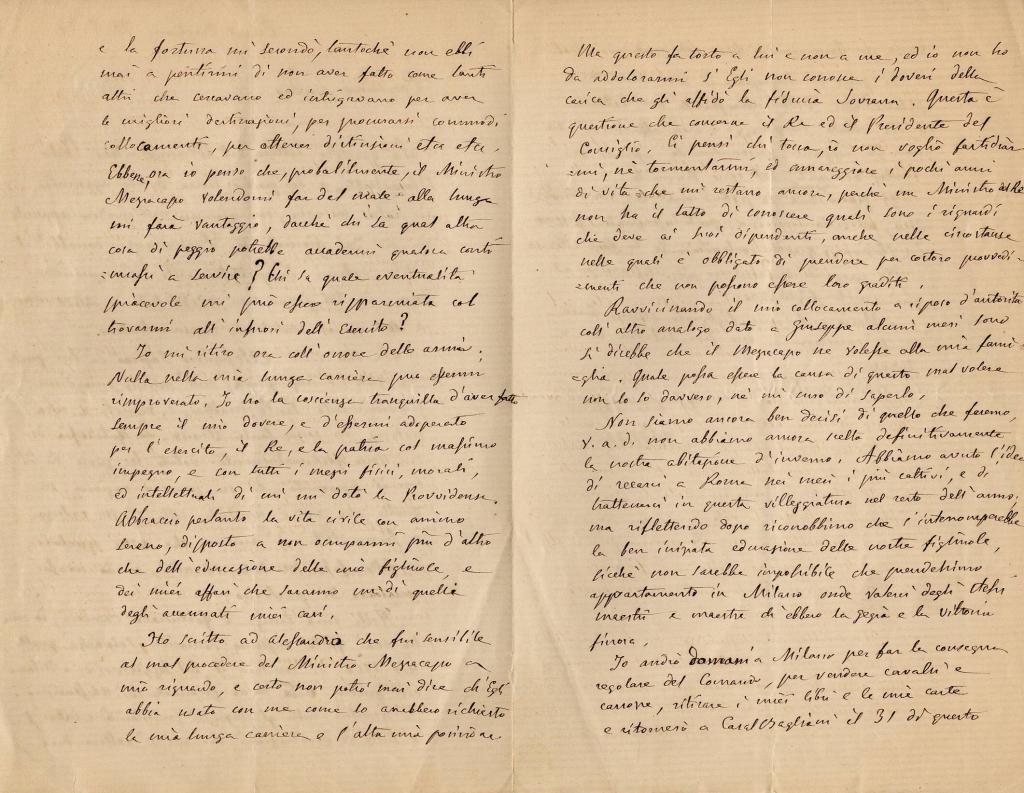 e la fortuna mi secondò, tantoché non ebbi
mai a pentirmi di non aver fatto come tanti
altri che cercavano ed intrigavano per aver
le migliori destinazioni, per procurarsi commodi
collocamenti, per ottener distinzioni etca etca.
Ebbene, ora io penso che, probabilmente, il Ministro
Mezzacapo volendomi far del male alla lunga
mi farà vantaggio, dacché chi sà qual altra
cosa di peggio potrebbe accadermi qualora conti
=nuassi a servire? Chi sa quale eventualità
spiacevole mi può essere risparmiata col
trovarmi all'infuori dell'Esercito?
Io mi ritiro ora coll'onore delle armi.
Nulla nella mia lunga carriera può essermi
rimproverato. Io ho la coscienza tranquilla d'aver fatto
sempre il mio dovere, e d'essermi adoperato
per l'esercito, il Re, e la patria col massimo
impegno, e con tutti i mezzi fisici, morali,
ed intellettuali di cui mi dotò la Provvidenza.
Abbraccio pertanto la vita civile con animo
sereno, disposto a non occuparmi più d'altro
che dell'educazione delle mie figliuole, e
dei miei affari che saranno un dì quelli
degli accennati miei cari.
Ho scritto ad Alessandro che fui sensibile
al mal procedere del Ministro Mezzacapo a
mio riguardo, e certo non potrò mai dire ch'Egli
abbia usato con me come lo avrebbero richiesto
la mia lunga carriera e l'alta mia posizione.
Ma questo fa torto a lui e non a me, ed io non ho
da addolorarmi s'Egli non conosce i doveri della
carica che gli affidò la fiducia Sovrana. Questa è
questione che concerne il Re ed il Presidente del
Consiglio. Ci pensi chi tocca, io non voglio fastidiar=
=mi, nè tormentarmi, ed amareggiare i pochi anni
di vita che mi restano ancora, perché un Ministro del Re
non ha il tatto di conoscere quali sono i riguardi
che deve ai suoi dipendenti, anche nelle circostanze
nelle quali è obbligato di prendere per costoro provvedi=
=menti che non possono essere loro graditi.
Ravvicinando il mio collocamento a riposo d'autorità
coll'altro analogo dato a Giuseppe alcuni mesi sono
si direbbe che il Mezzacapo ne volesse alla mia fami
=glia. Quale possa essere la causa di questo mal volere
non lo so davvero, nè mi curo di saperlo.
Non siamo ancora ben decisi di quello che faremo,
v. a. d. non abbiamo ancora scelta definitivamente
la nostra abitazione d'inverno. Abbiamo avuto l'idea
di recarci a Roma nei mesi i più cattivi, e di
trattenerci in questa villeggiatura nel resto dell'anno,
ma riflettendo dopo riconobbimo che s'interromperebbe
la ben iniziata educazione delle nostre figliuole,
sicché non sarebbe impossibile che prendessimo
appartamento in Milano onde valerci degli stessi
maestri e maestre ch'ebbero la Gegia e la Vittoria
finora.
Io andrò domani a Milano per far la consegna
regolare del Comando, per vendere cavalli e
carrozze, ritirare i miei libri e le mie carte
e ritornerò a Casal Bagliani il 31 di questo